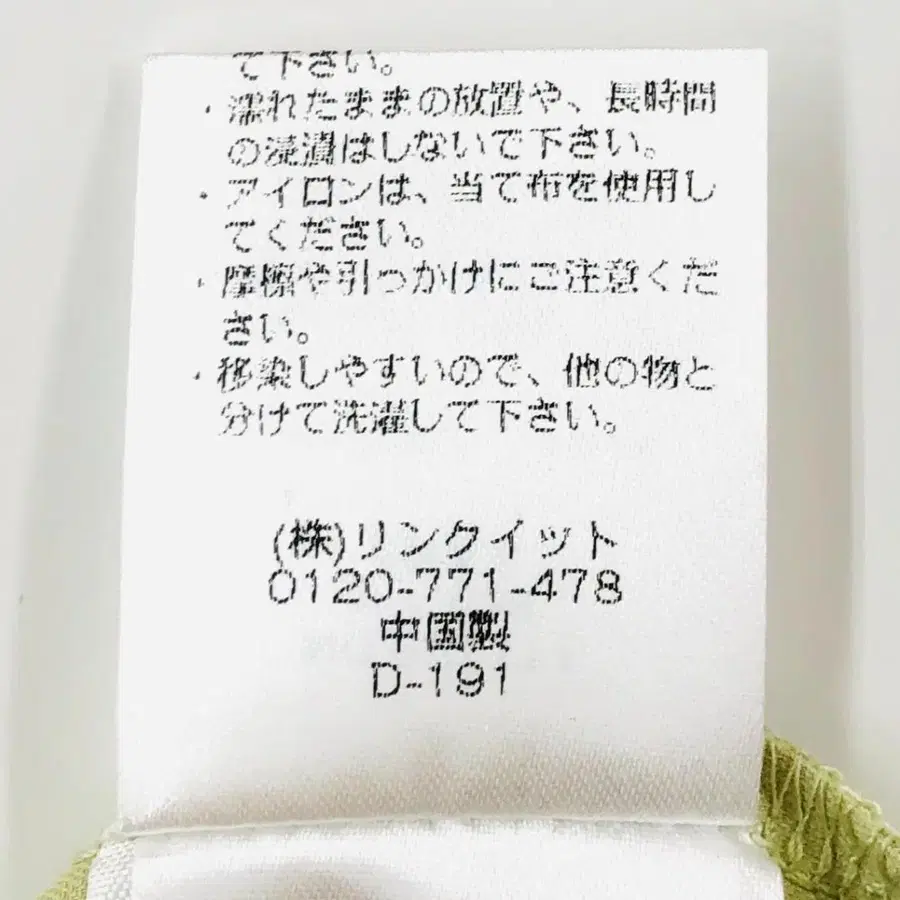 て下さい。
・濡れたままの放置や、長時間
の浸漬はしないで下さい。
・アイロンは、当て布を使用し
てください。
・摩擦や引っかけにご注意くだ
さい。
・移染しやすいので、他の物と
分けて洗濯して下さい。
(株)リンクイット
0120-771-478
中国製
D-191